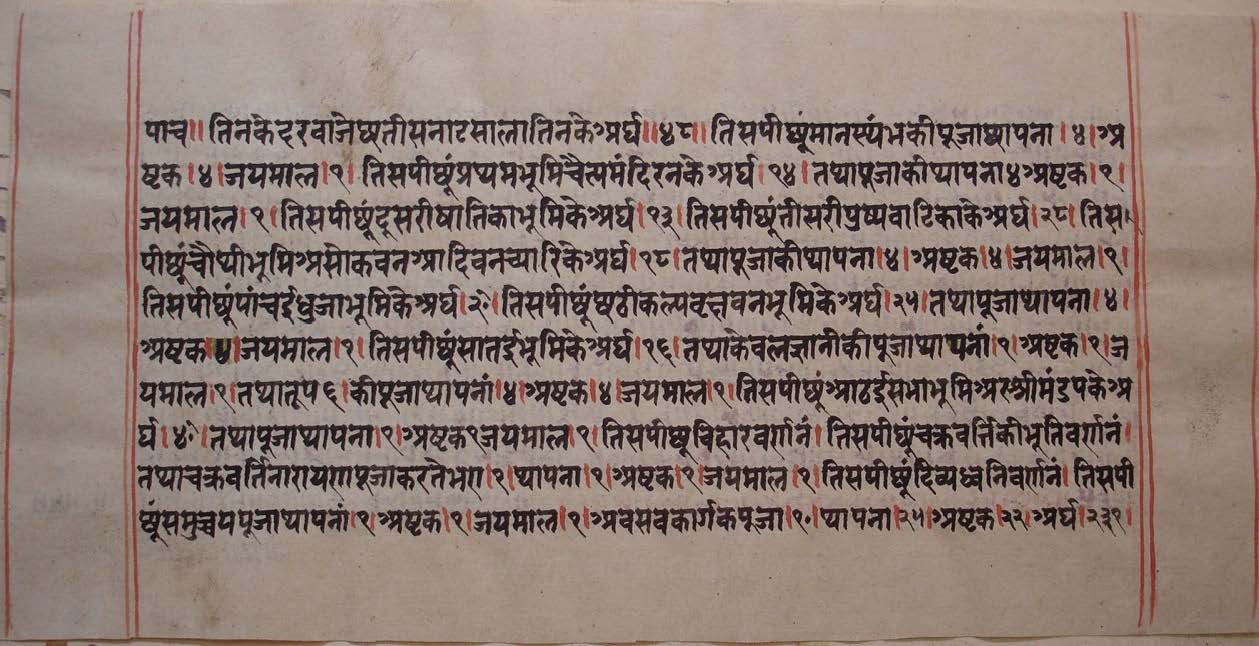 पाच॥ तिनकेदरवाजेष्षतीसनाटसालातिनकेअर्घ॥४८। तिसपीष्षूंमानस्थंभकीपूजाथापना।४।अ
ष्टक।४।जयमाल।१। तिसपीष्षूंप्रथमभूमिचैत्यमंदिरनकेअर्घ।१४।तथापूजाकीथापना४अष्टक।१।
जयमाल।१।तिसपीष्षूंदूसरीषातिकाभूमिकेअर्घ।१३।तिसपीष्षूंतीसरीपुष्पवाटिकाकेअर्घ।२८।तिस
पीष्षूंचौथीभूमिअसोकवनआदिवनच्यारिकेअर्घ।१८।तथापूजाकीथापना।४।अष्टक।४।जयमाल।१।
तिसपीष्षूंपांचईधुजाभूमिकेअर्घ।२०।तिसपीष्षूंष्षठीकल्पवृक्षवनभूमिकेअर्घ२५।तथापूजाथापना।४।
अष्टक।४।जयमाल।१।तिसपीष्षूंसातईभूमिकेअर्घ।१६।तथाकेवलज्ञानीकीपूजाथापनां।१।अष्टक।१।ज
यमाल।१।तथातूप९कीपूजाथापनां।४।अष्टक।४।जयमाल।१।तिसपीष्षूंआठईसभाभूमिअरश्रीमंडपकेअ
र्घ।४०।तथापूजाथापना।१।अष्टक१जयमाल।१।तिसपीष्षूविहारवर्णनं।तिसपीष्षूंचक्रवर्त्तिकीभूतिवर्णनं।
तथाचक्रवर्तिनारायणपूजाकरतैभए।१।थापना।१।अष्टक।१।जयमाल।१।तिसपीष्षूंदिव्यध्वनिवर्णनं।तिसपी
ष्षूंसमुच्चयपूजाथापनां।१।अष्टक।१।जयमाल।१।अवसवकार्गकपूजा।१०।थापना।२५।अष्टक।२२।अर्घ।२३१।